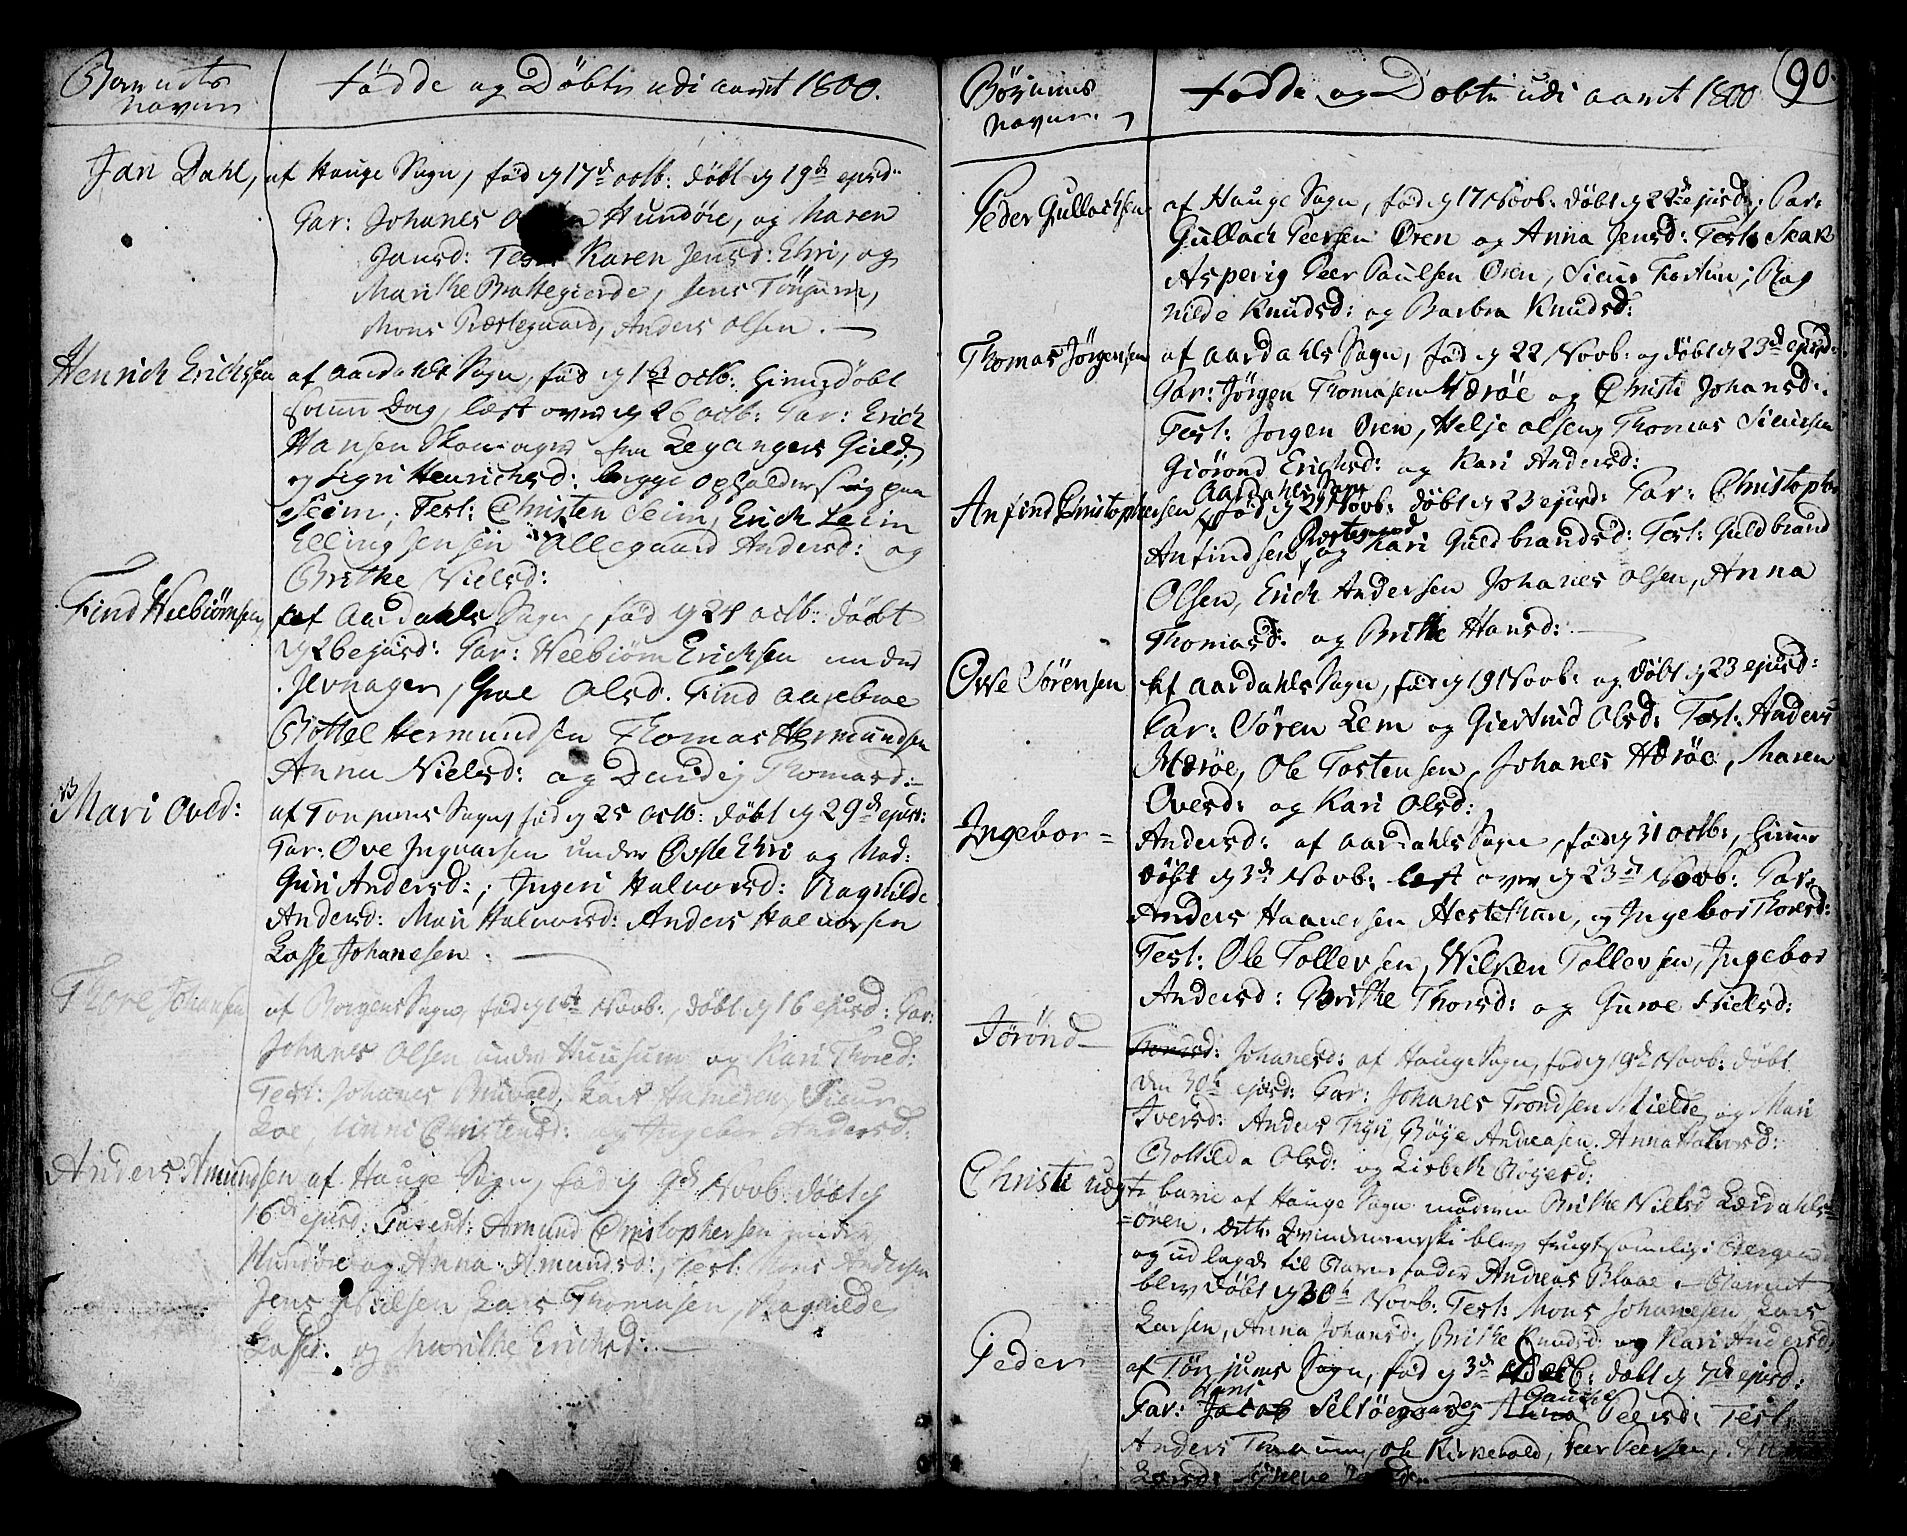 Barnets
navne
Fødde og Døbte udi aaret 1800.
Jan Dahl, af Hauge Sogn, fød d 17de octb: døbt d 19de ejusd:
Par: Johanes Hundøie, og Maren
Jansd: Test: Karen Jensd: Ehri, og
Marithe Brattegierde, Jens Tønjum,
Mons Præstegaard, Anders Olsen.
Henrich Erichsen af Aardahls Sogn, fød d 1st octb: hiemedøbt
samme Dag, læst over d 26 octb: Par: Erich
Hansen Skomager fra Leganger Gield,
og Segri Henrichsd: begge opholder sig paa
Seim. Test: Christen Seim, Erich Seim
Elling Jensen Allegaard Andersd: og
Brithe Nielsd:
Find Heebiørnsen, af Aardahls Sogn, fød d 24 octb: døbt
d 26 ejusd: Par: Heebiørn Erichsen under
Jevnager, Groe Olsd. Find Aarebroe
Bottel Hermundsen Thomas Hermundsen
Anna Nielsd: og Thomasd:
Mari Oved: af Tønjums Sogn, fød d 25 octb: døbt d 29de ejusd:
Par: Ove Ingvarsen under Øvste Ehri og Mad:
Guri Andersd:, Ingeri Halvorsd: Ragnilde
Andersd: Mari Halvorsd: Anders Halvorsen
Lasse Johanesen.
Thore Johansen af Borgens Sogn, fød d 1st Novb:, døbt d 16 ejusd: Par:
Johanes Olsen under Huusum og Kari Thored:
Test: Johanes Lars Hameren, Siur
Loe, Unni Christensd: og Ingebor Andersd:
Anders Amundsen af Hauge Sogn, fød d 9de Novb: døbt d
16de ejusd: Parent: Amund Christophersen under
Hundøie og Anna Amundsd:, Test: Mons Andersen
Jens Nielsen Lars Thomasen, Ragnilde
Lassed: og Marithe Erichsd:
Børnenes
navne.
Fødde og Døbte udi aaret 1800
90.
Peder Gullachsen af Hauge Sogn, fød d 17 Novb: døbt d 22de ejusd; Par:
Gullach Peersen Øren og Anna Jensd: Test: Skak
Asperig Peer Paulsen Øren, Siur Fortun; Rag
nilde Knudsd: og Barbra Knudsd:
Thomas Jørgensen af Aardahls Sogn, fød d 22 Novb: og døbt d 23de ejusd:
Par: Jørgen Thomasen Nærøe og Christi Johansd:
Test: Jorgen Øren, Helje Olsen, Thomas Siursen
Giørond Erichsd: og Kari Andersd:
Anfind Christophersen Aardahls Sogn fød d 21 Novb: døbt d 23 ejusd: Par: Christopher
Anfindsen Præstegaard og Kari Guldbrandsd: Test: Guldbrand
Olsen, Erich Andersen Johanes Olsen, Anna
Thomasd: og Brithe Hansd:
Ove Sørensen af Aardahls Sogn, fød d 19 Novb: og døbt d 23 ejusd:
Par: Søren Lem og Giertrud Olsd: Test: Anders
Nærøe, Ole Tostensen, Johanes Nærøe, Maren
Ovesd: og Kari Olsd:
Ingebor = Andersd: af Aardahls Sogn, fød d 31 octb:, hieme
døbt d 3de Novb: læst over d 23de Novb: Par:
Anders Haaversen Hestethun, og Ingebor Thoresd:
Test: Ole Tollevsen, Wilken Tollevsen, Ingebor
Andersd: Brithe Thorsd: og Guroe Nielsd:
Jørønd Johanesd: af Hauge Sogn, fød d 9de Novb: døbt
den 30te ejusd: Par: Johanes Trondsen Mielde, og Mari
Iversd: Anders Thyri, Bøye Andreasen. Anna Halvorsd:
Bothilda Olsd: og Lisbeth Bøyesd:
Christi uægte barn af Hauge Sogn moderen Brithe Nielsd Lærdahls=
=øren. dette Qvindemenniske blev frugtsommelig i Bergen
og udlagde til Barnefader Andreas Blaae. Barnet
blev døbt d 30te Novb: Test: Mons Johanesen, Lars
Larsen, Anna Johansd: Brithe Knudsd: og Kari Andersd:
Peder af Tønjums Sogn, fød d 3de decb: døbt d 7de ejusd:
Par: Hans Jacob Seltøe og Anna Peersd: Test:
Anders Ole Kirkevold, Peer Peersen,
Larsd: